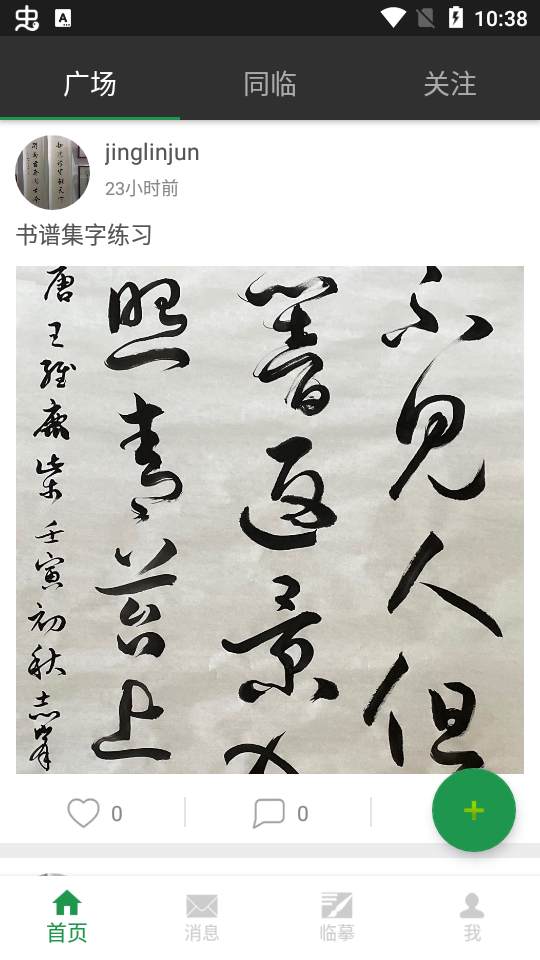 10:38
广场
同临
关注
jinglinjun
23小时前
书谱集字练习
不見人但
響返景入
照青苔上
唐王維鹿柴壬寅初秋志峯
0
0
首页
消息
临摹
我